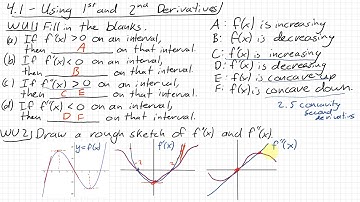 4.1 - Using 1st and 2nd Derivatives
WU1 Fill in the blanks.
(a) If f'(x) > 0 on an interval,
then A on that interval.
(b) If f'(x) < 0 on an interval,
then B on that interval.
(c) If f''(x) > 0 on an interval,
then C E on that interval.
(d) If f''(x) < 0 on an interval,
then D F on that interval.
A: f(x) is increasing
B: f(x) is decreasing
C: f'(x) is increasing
D: f'(x) is decreasing
E: f(x) is concave up
F: f(x) is concave down.
2.5 concavity
second
derivative
WU2 Draw a rough sketch of f'(x) and f''(x).
y=f(x)
f'(x)
f''(x)